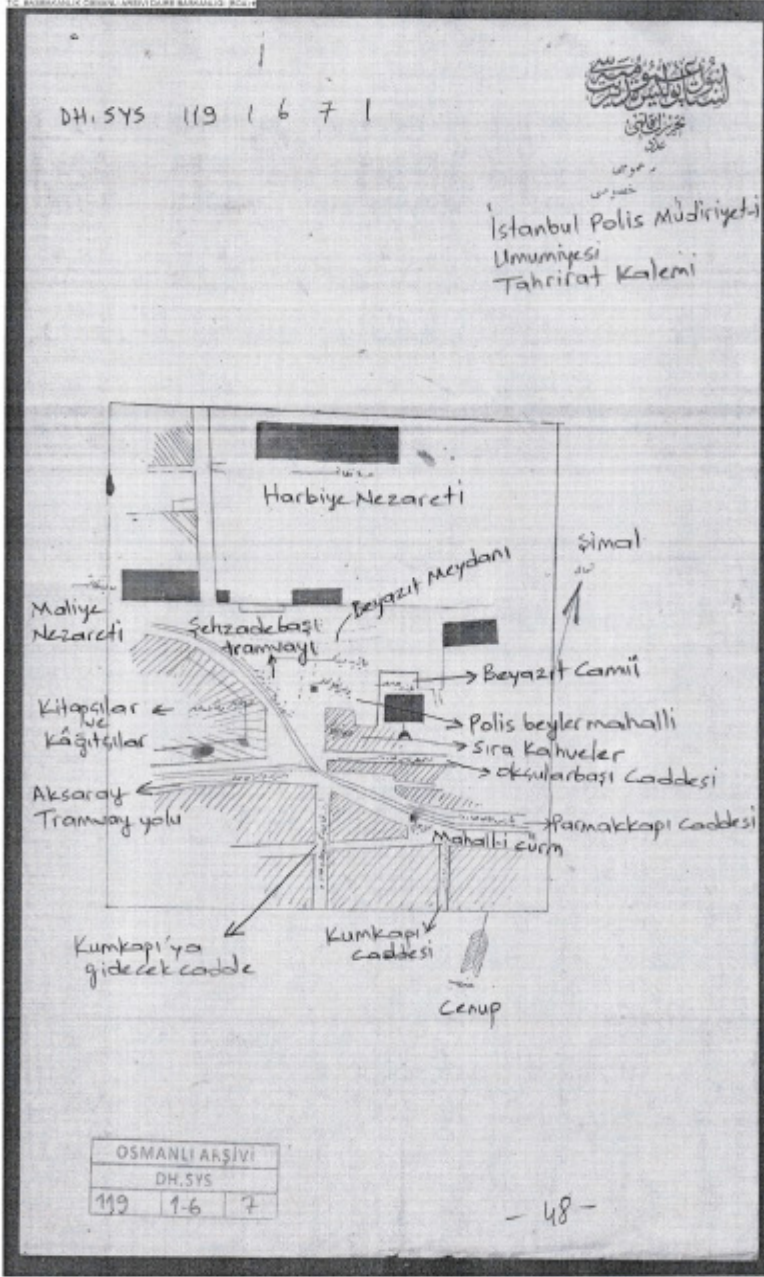 T.C. BAŞBAKANLIK OSMANLI ARŞİVİ DAİRE BAŞKANLIĞI (BOA)
1
DH.SYS 119 1 6 7 1
İstanbul Polis Müdiriyet-i
Umumiyesi
Tahrirat Kalemi
Harbiye Nezareti
Şimal
Beyazıt Meydanı
Maliye
Nezareti
Şehzadebaşı
tramvayı
Beyazıt Camii
Kitapçılar
ve
kâğıtçılar
Polis beyler mahalli
Sıra Kahveler
Okçularbaşı Caddesi
Aksaray
Tramvay yolu
Parmakkapı Caddesi
Mahall-i cürm
Kumkapı'ya
gidecek cadde
Kumkapı
caddesi
Cenup
OSMANLI ARŞİVİ
DH.SYS
119 1-6 7
- 48 -